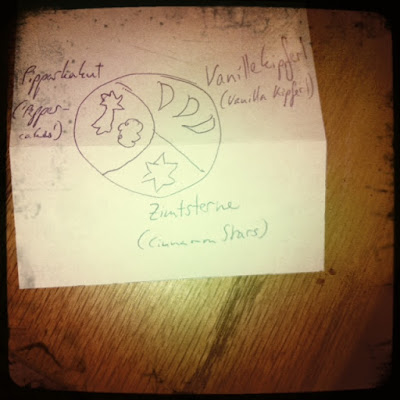 Pipparkakut
(Pepper-
cakes!)
Vanillekipferl
(Vanilla Kipferl)
Zimtsterne
(Cinnamon Stars)